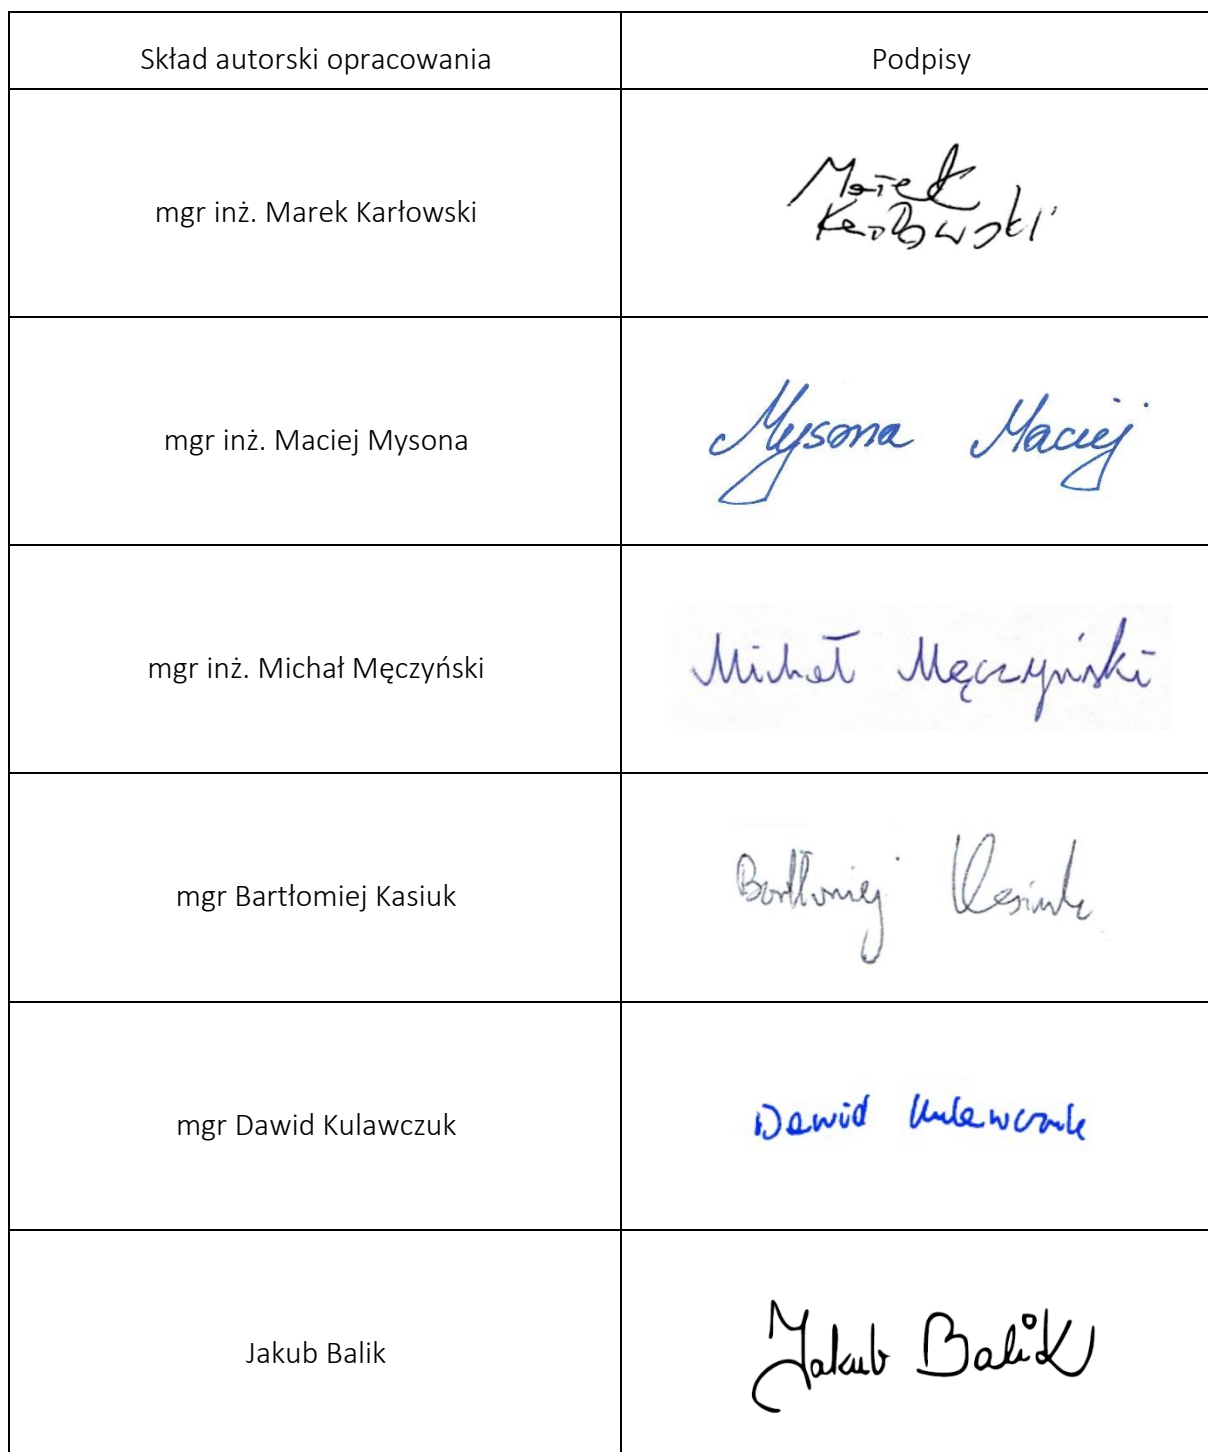 Skład autorski opracowania
Podpisy
mgr inż. Marek Karłowski
Marek
Karłowski
mgr inż. Maciej Mysona
Mysona Maciej
mgr inż. Michał Męczyński
Michał Męczyński
mgr Bartłomiej Kasiuk
Bartłomiej Kasiuk
mgr Dawid Kulawczuk
Dawid Kulawczuk
Jakub Balik
Jakub Balik